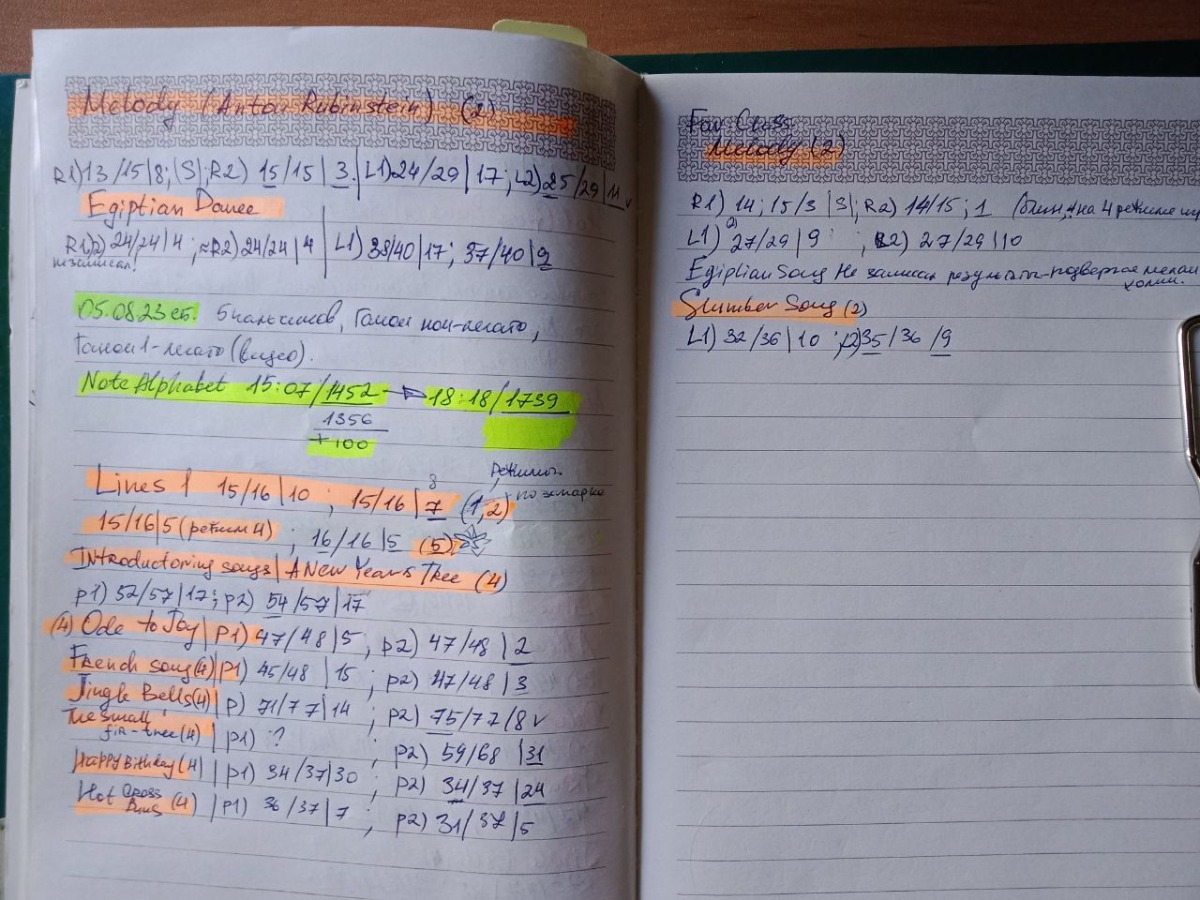 Melody (Anton Rubinstein) (2)
R1) 13/15|8; |S|; R2) 15/15|3. | L1) 24/29|17; L2) 25/29|11 v
Egiptian Dance
R1)2) 24/24|4; R2) 24/24|4 | L1) 38/40|17; 37/40|9
не записал!
05.08.23 сб. 5 пальчиков, Гамон нон-легато,
Гамон 1-легато (видео).
Note Alphabet 15:07/1452 → 18:18/1739
1356
+100
режимы
по
Lines 1 15/16|10; 15/16|7 8 (1,2)
15/16|5 (режим 4); 16/16|5 (5)
Introductoring songs| A New Years Tree (4)
p1) 52/57|17; p2) 54/57|17
(4) Ode to Joy| p1) 47/48|5, p2) 47/48|2
French song (4)| p1) 45/48|15; p2) 47/48|3
Jingle Bells (4)| p) 71/77|14; p2) 75/77/8 v
The small
fir-tree (4)| p1) ? ; p2) 59/68|31
Happy Bithday (4)| p1) 34/37|30; p2) 34/37|24
Hot Cross
Buns (4)| p1) 36/37|7; p2) 31/37|5
For Class
Melody (2)
R1) 14; 15/3 |S|; R2) 14/15; 1 (блин, на 4 режиме
L1) 2) 27/29|9; L2) 27/29|10
Egiptian Song Не записал результаты-подвергся мелан
холии.
Slumber Song (2)
L1) 32/36|10; 2) 35/36/9